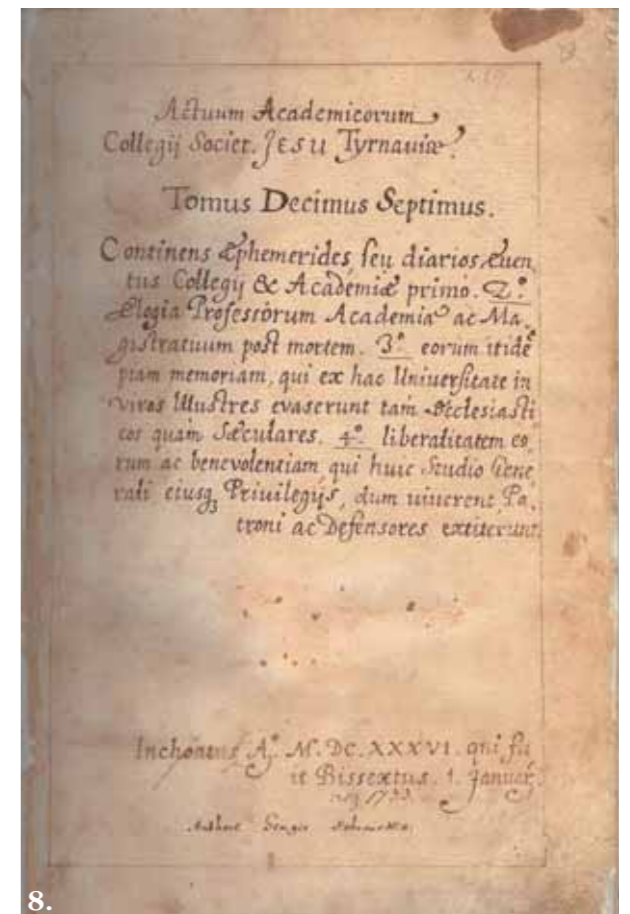 Actuum Academicorum
Collegij Societ. JESU Tyrnaviæ.
Tomus Decimus Septimus.
Continens Ephemerides, seu diarios, Even,
tus Collegij & Academiæ primo. 2.º
Elogia Professorum Academiæ ac Ma,
gistratuum post mortem. 3.º eorum itidẽ
piam memoriam, qui ex hac Universitate in
viros Illustres evaserunt tam Ecclesiasti
cos quam Sæculares. 4.º liberalitatem eo,
rum ac benevolentiam, qui huic Studio Gene
rali eiusq3 Privilegijs, dum viverent, Pa,
troni ac Defensores extiterunt.
Inchoatus Aº M.DC.XXXVI. qui fu
it Bissextus. 1. Januar.
8.